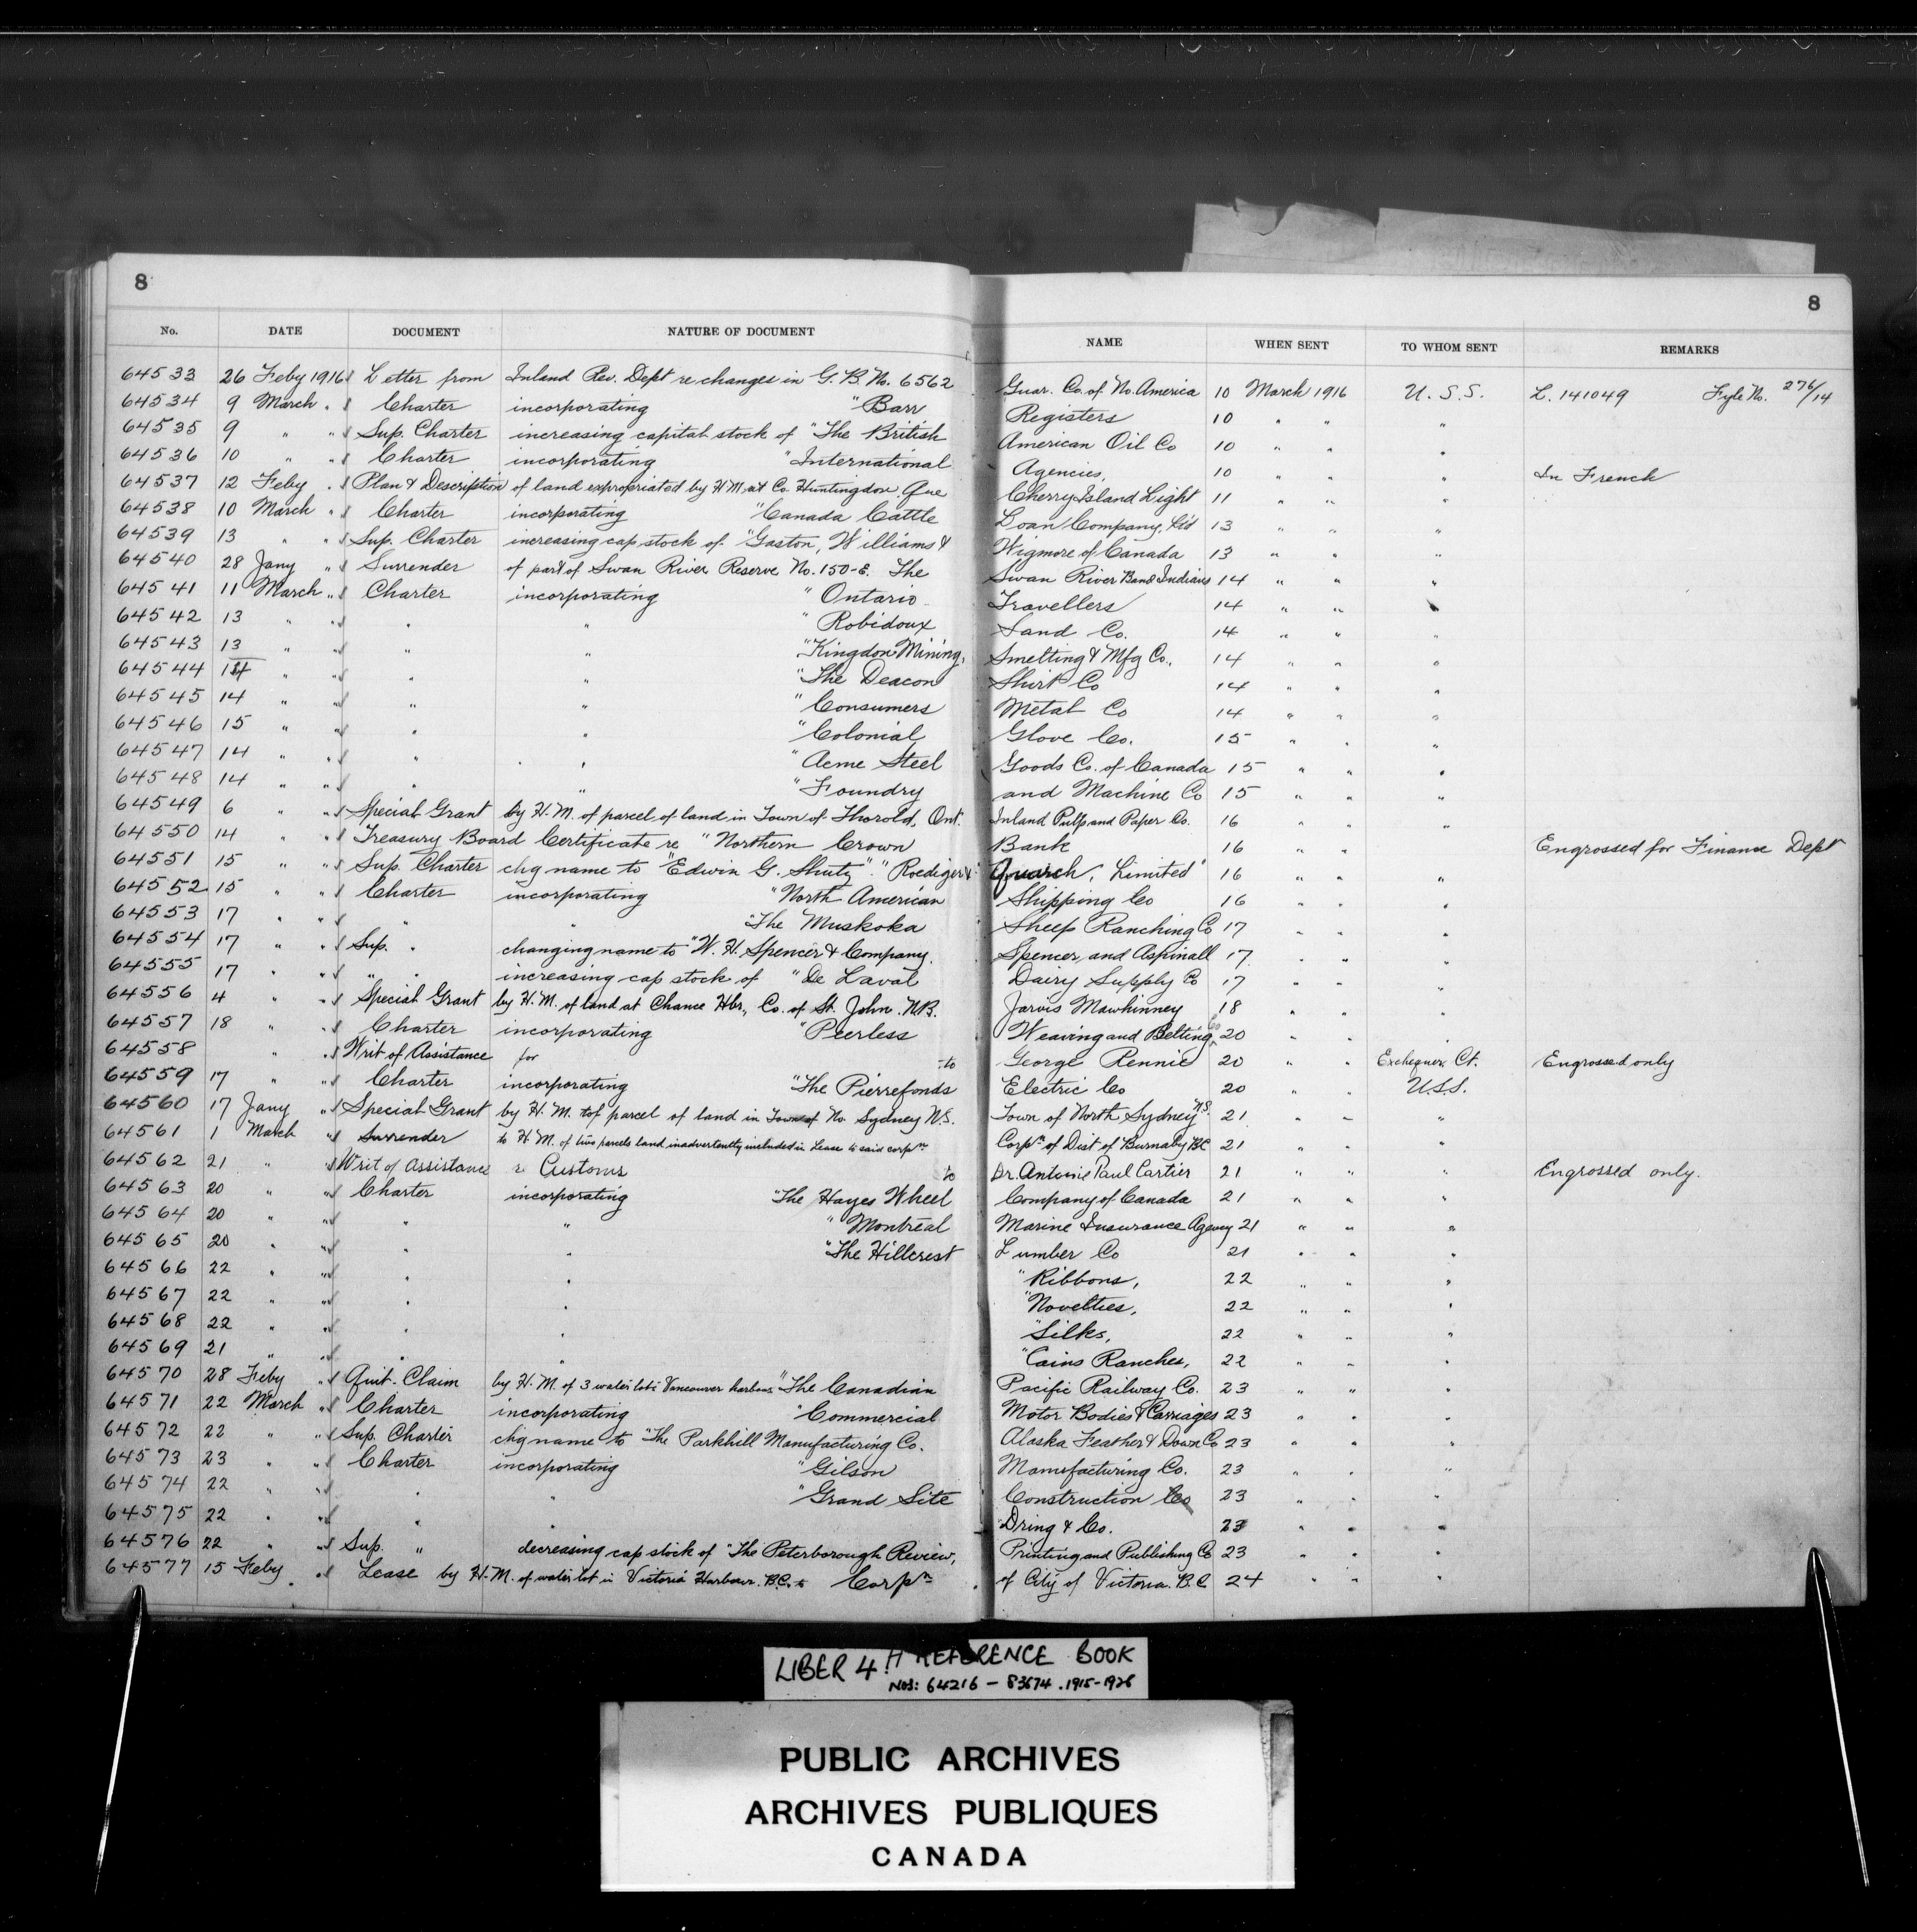 8 8
No. DATE DOCUMENT NATURE OF DOCUMENT NAME WHEN SENT TO WHOM SENT REMARKS
64533 26 Feby 1916 Letter from Inland Rev. Dept re changes in G.B. No. 6562 Guar. Co. of No. America 10 March 1916 U.S.S. L. 141049 Fyle No. 276/14
64534 9 March " Charter incorporating "Barr Registers 10 " " "
64535 9 " " Sup. Charter increasing capital stock of "The British American Oil Co 10 " " "
64536 10 " " Charter incorporating "International Agencies, 10 " " " In French
64537 12 Feby " Plan & Description of land expropriated by H.M. at Co. Huntingdon, Que Cherry Island Light 11 " " "
64538 10 March " Charter incorporating "Canada Cattle Loan Company, Ltd 13 " " "
64539 13 " " Sup. Charter increasing cap stock of "Gaston, Williams & Wigmore of Canada 13 " " "
64540 28 Jany " Surrender of part of Swan River Reserve No. 150-E. The Swan River Band Indians 14 " " "
64541 11 March " Charter incorporating "Ontario Travellers 14 " " "
64542 13 " " " " "Robidoux Land Co. 14 " " "
64543 13 " " " " "Kingdon Mining, Smelting & Mfg Co., 14 " " "
64544 14 " " " " "The Deacon Shirt Co 14 " " "
64545 14 " " " " "Consumers Metal Co 14 " " "
64546 15 " " " " "Colonial Glove Co. 15 " " "
64547 14 " " " " "Acme Steel Goods Co. of Canada 15 " " "
64548 14 " " " " "Foundry and Machine Co 15 " " "
64549 6 " " Special Grant by H.M. of parcel of land in Town of Thorold, Ont. Inland Pulp and Paper Co. 16 " " "
64550 14 " " Treasury Board Certificate re "Northern Crown Bank 16 " " Engrossed for Finance Dept
64551 15 " " Sup. Charter chg name to "Edwin G. Shutz" "Roediger & Quarch, Limited" 16 " " "
64552 15 " " Charter incorporating "North American Shipping Co 16 " " "
64553 17 " " " " "The Muskoka Sheep Ranching Co 17 " " "
64554 17 " " Sup. " changing name to "W. H. Spencer & Company. Spencer and Aspinall 17 " " "
64555 17 " " " " increasing cap stock of "De Laval Dairy Supply Co 17 " " "
64556 4 " " Special Grant by H.M. of land at Chance Hbr., Co. of St. John. N.B. Jarvis Mawhinney 18 " " "
64557 18 " " Charter incorporating "Peerless Weaving and Belting Co 20 " " "
64558 " " Writ of Assistance for to George Rennie 20 " " Exchequer Ct. Engrossed only
64559 17 " " Charter incorporating "The Pierrefonds Electric Co 20 " " U.S.S.
64560 17 Jany " Special Grant by H.M. of parcel of land in Town of No. Sydney N.S. Town of North Sydney N.S. 21 " " "
64561 1 March " Surrender to H.M. of two parcels land inadvertently included in Lease to said corpn Corpn of Dist of Burnaby B.C 21 " "
64562 21 " " Writ of Assistance re Customs to Dr. Antonie Paul Cartier 21 " " " Engrossed only.
64563 20 " " Charter incorporating "The Hayes Wheel Company of Canada 21 " " "
64564 20 " " " " "Montreal Marine Insurance Agency 21 " " "
64565 20 " " " " "The Hillcrest Lumber Co 21 " " "
64566 22 " " " " "Ribbons, 22 " " "
64567 22 " " " " "Novelties, 22 " " "
64568 22 " " " " "Silks, 22 " " "
64569 21 " " " " "Cains Ranches, 22 " " "
64570 28 Feby " Quit. Claim by H.M. of 3 water lots Vancouver harbour "The Canadian Pacific Railway Co. 23 " " "
64571 22 March " Charter incorporating "Commercial Motor Bodies & Carriages 23 " " "
64572 22 " " Sup. Charter chg name to "The Parkhill Manufacturing Co. Alaska Feather & Down Co 23 " " "
64573 23 " " Charter incorporating "Gilson Manufacturing Co. 23 " " "
64574 22 " " " " "Grand Site Construction Co 23 " " "
64575 22 " " " " "Dring & Co. 23 " " "
64576 22 " " Sup. " decreasing cap stock of "The Peterborough Review, Printing and Publishing Co 23 " " "
64577 15 Feby " Lease by H.M. of water lot in Victoria Harbour. B.C. to Corpn of City of Victoria. B.C. 24 " " "
LIBER 4 H REFERENCE BOOK
NOS: 64216 – 83674 . 1915-1928
PUBLIC ARCHIVES
ARCHIVES PUBLIQUES
CANADA